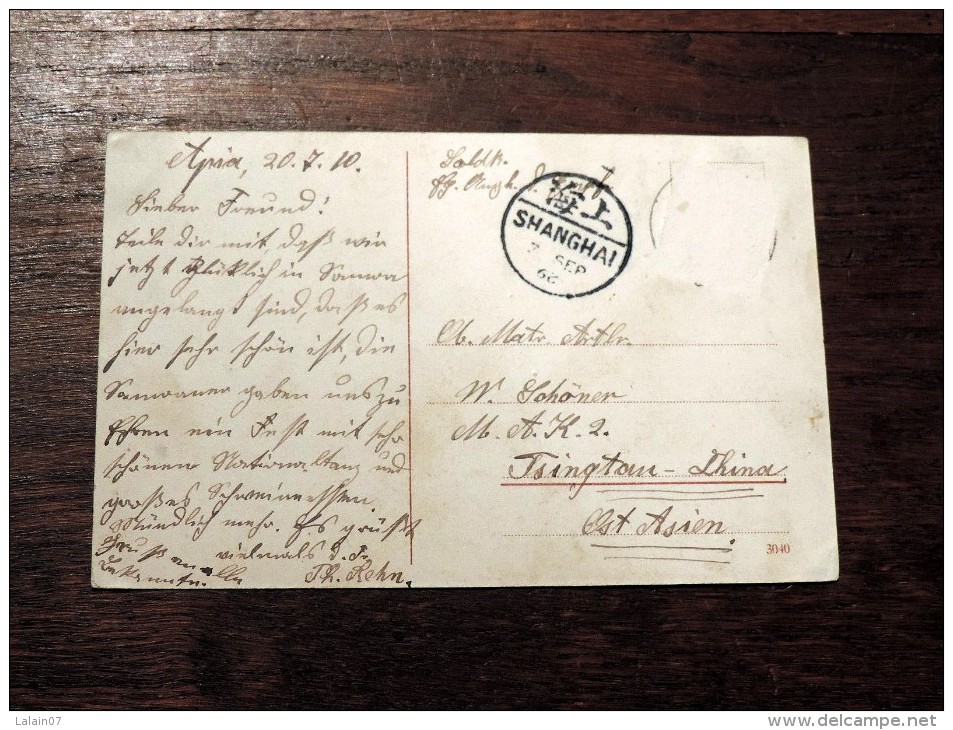 Apia, 20.7.10.
Lieber Freund!
Teile dir mit, daß wir
jetzt glücklich in Samoa
angelangt sind, daß es
hier sehr schön ist, die
Samoaner gaben uns zu
Ehren ein Fest mit sehr
schönen Nationaltanz und
großes Schweineessen.
Mündlich mehr. Es grüßt
vielmals d. Fr.
Th. Rehn.
Gruß an alle
Bekannte.
Soldk.
海上
SHANGHAI
7 SEP
Ob. Matr. Artlr.
W. Schöner
M. A. K. 2.
Tsingtau - China
Ost Asien
3040
Lalain07
www.delcampe.net